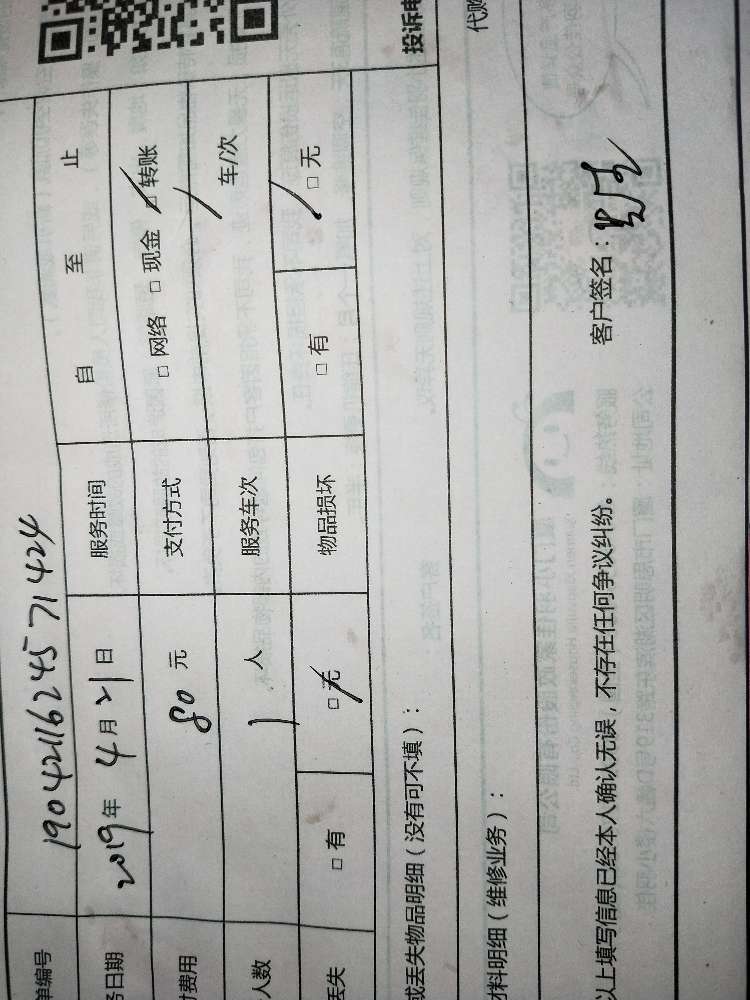 投诉电
代购
单编号 1904211624571424
务日期 2019年4月21日 服务时间 自 至 止
付费用 80元 支付方式 □网络 □现金 □转账
人数 1人 服务车次 车/次
丢失 □有 □无 物品损坏 □有 □无
或丢失物品明细（没有可不填）：
材料明细（维修业务）：
以上填写信息已经本人确认无误，不存在任何争议纠纷。 客户签名：